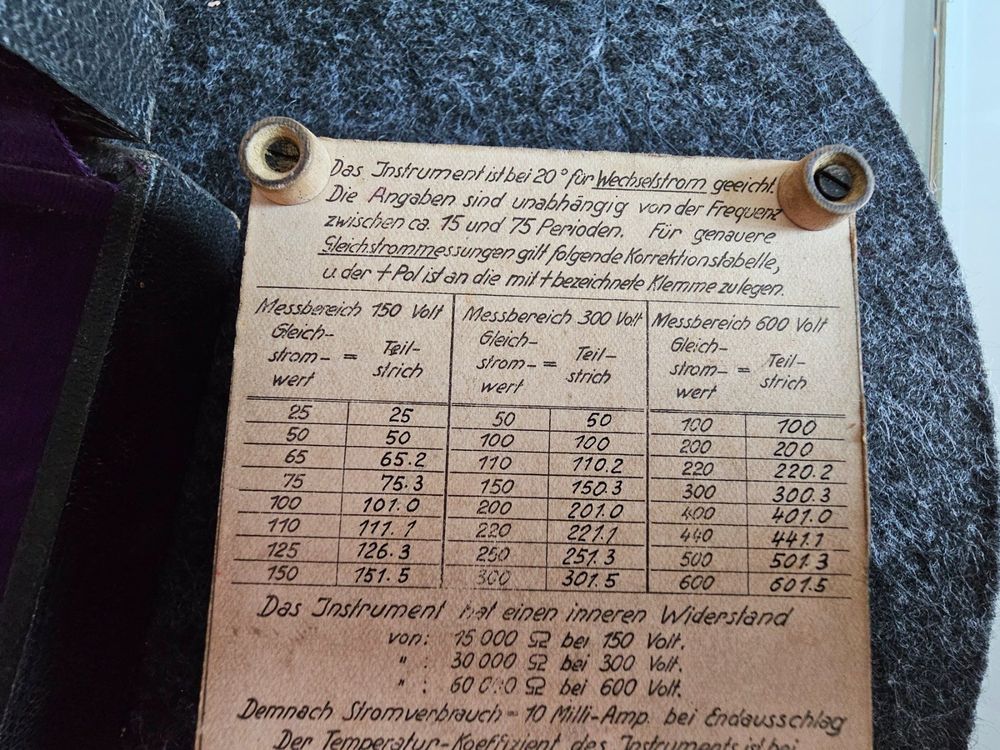 Das Instrument ist bei 20° für Wechselstrom geeicht.
Die Angaben sind unabhängig von der Frequenz
zwischen ca. 15 und 75 Perioden. Für genauere
Gleichstrommessungen gilt folgende Korrektionstabelle,
u. der + Pol ist an die mit + bezeichnete Klemme zu legen.
Messbereich 150 Volt Messbereich 300 Volt Messbereich 600 Volt
Gleich- Gleich- Gleich-
strom- = Teil- strom- = Teil- strom- = Teil-
wert strich wert strich wert strich
25 25 50 50 100 100
50 50 100 100 200 200
65 65.2 110 110.2 220 220.2
75 75.3 150 150.3 300 300.3
100 101.0 200 201.0 400 401.0
110 111.1 220 221.1 440 441.1
125 126.3 250 251.3 500 501.3
150 151.5 300 301.5 600 601.5
Das Instrument hat einen inneren Widerstand
von: 15 000 Ω bei 150 Volt.
" : 30 000 Ω bei 300 Volt.
" : 60 000 Ω bei 600 Volt.
Demnach Stromverbrauch = 10 Milli-Amp. bei Endausschlag
Der Temperatur-Koeffizient des Instruments ist bei